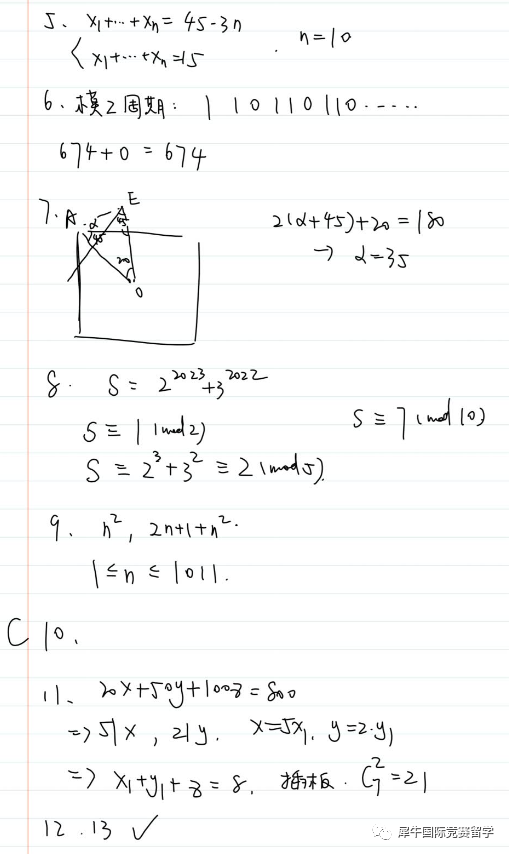 5. x₁+⋯+xₙ = 45-3n
{ x₁+⋯+xₙ=15 . n=10
6. 模2周期: 1 1 0 1 1 0 1 1 0 ⋯⋯
674+0 = 674
7. A α E 45 45 20 O
2(α+45)+20=180
→ α=35
8. S = 2²⁰²³+3²⁰²²
S ≡ 1 (mod 2)
S ≡ 7 (mod 10)
S ≡ 2³+3² ≡ 2 (mod 5).
9. n², 2n+1+n².
1≤n≤1011.
C 10.
11. 20x+50y+100z=800
=> 5|x, 2|y. x=5x₁, y=2·y₁
=> x₁+y₁+z=8. 插板. C₇²=21
12. 13 ✓
犀牛国际竞赛留学